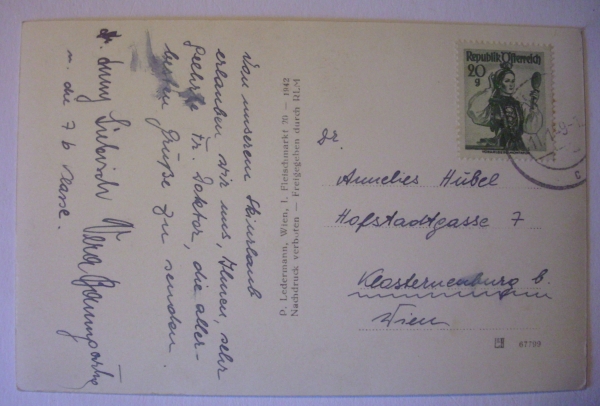 Von unserem Skiurlaub
erlauben wir uns, Ihnen, sehr
geehrte Fr. Doktor, die aller-
besten Grüße zu senden.
Vera Baumgartn
u. die 7 b Klasse.
P. Ledermann, Wien, I. Fleischmarkt 20 — 1942
Nachdruck verboten — Freigegeben durch RLM
Republik Österreich
20
g
Dr.
Annelies Hübel
Hofstadtgasse 7
Klosterneuburg b.
Wien
67799